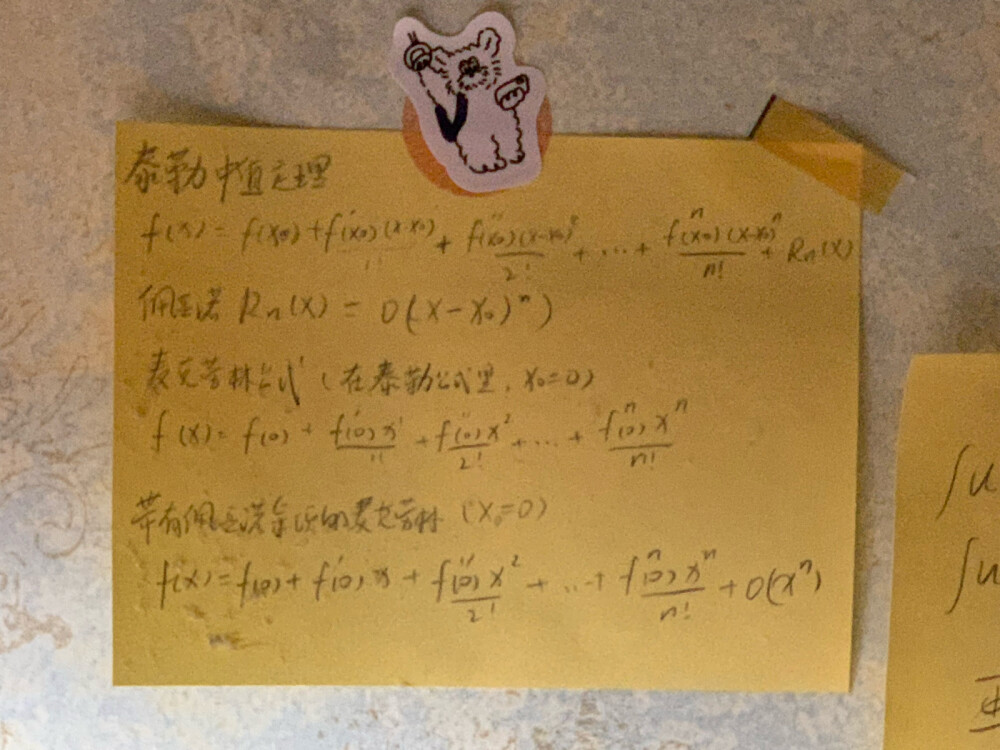 泰勒中值定理
f(x) = f(x₀) + f'(x₀)(x-x₀)/1! + f''(x₀)(x-x₀)²/2! + ... + fⁿ(x₀)(x-x₀)ⁿ/n! + Rn(x)
佩亚诺 Rn(x) = o(x-x₀)ⁿ)
麦克劳林公式（在泰勒公式里，x₀=0）
f(x) = f(0) + f'(0)x¹/1! + f''(0)x²/2! + ... + fⁿ(0)xⁿ/n!
带有佩亚诺余项的麦克劳林（x₀=0）
f(x) = f(0) + f'(0)x + f''(0)x²/2! + ... + fⁿ(0)xⁿ/n! + o(xⁿ)
∫u
∫u